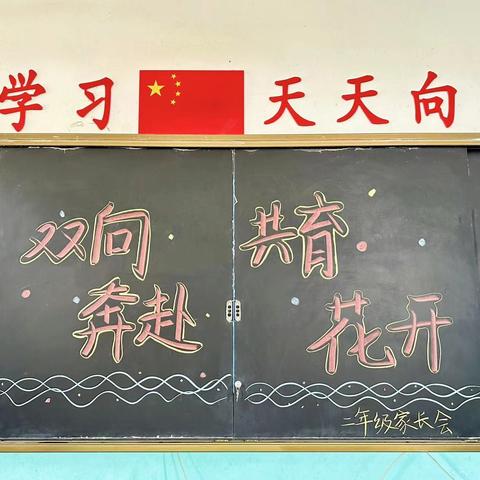 学习 天天向
双向
奔赴
共育
花开
二年级家长会